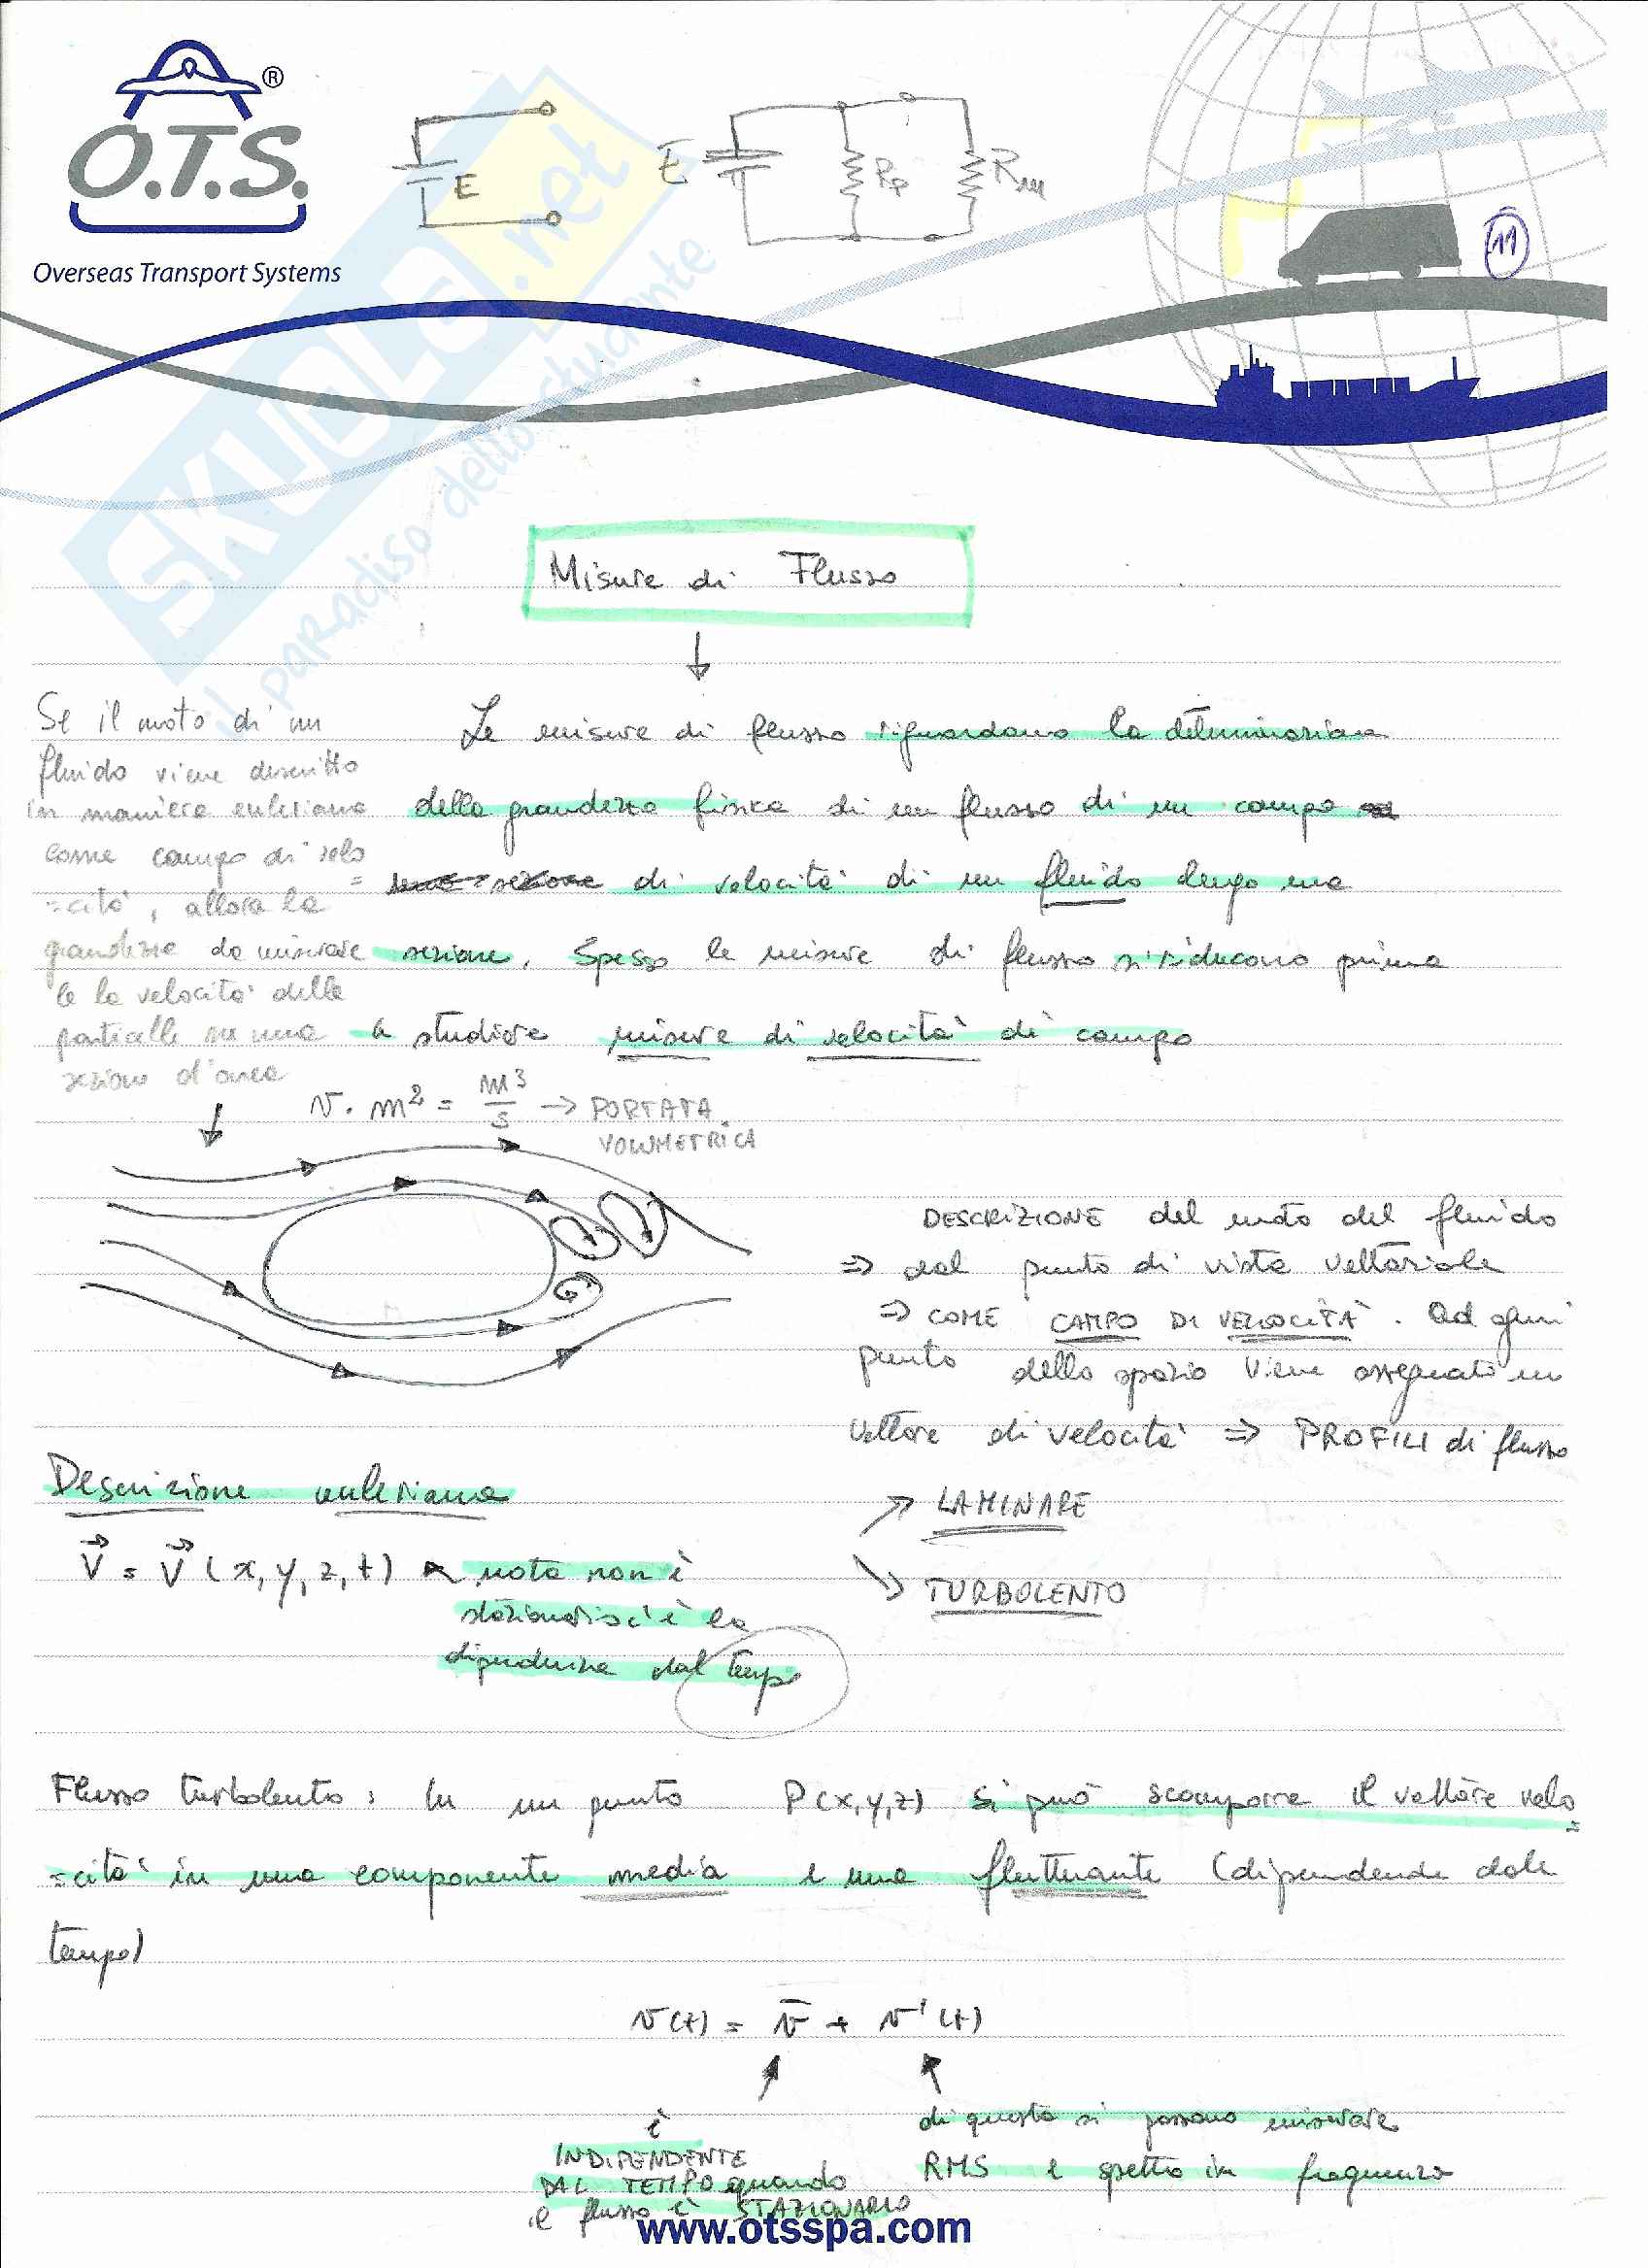 O.T.S.
®
Overseas Transport Systems
E
E
Rp
Rm
11
SKUOLA.net
il paradiso dello studente
Misure di Flusso
Le misure di flusso riguardano la determinazione
della grandezza fisica di un flusso di un campo
di velocità di un fluido lungo una
sezione. Spesso le misure di flusso si riducono prima
a studiare misure di velocità di campo
Se il moto di un
fluido viene descritto
in maniera euleriana
come campo di velo
=cità, allora la
grandezza da misurare
è la velocità delle
particelle su una
sezione d'area
v · m² = m³/s → PORTATA
VOLUMETRICA
DESCRIZIONE del moto del fluido
⇒ dal punto di vista vettoriale
⇒ COME CAMPO DI VELOCITÀ. Ad ogni
punto dello spazio viene assegnato un
vettore di velocità ⇒ PROFILI di flusso
LAMINARE
TURBOLENTO
Descrizione euleriana
V = V (x, y, z, t) moto non è
stazionario c'è la
dipendenza dal tempo
Flusso turbolento: In un punto P(x,y,z) si può scomporre il vettore velo
=cità in una componente media e una fluttuante (dipendende dal
tempo)
v(t) = v̄ + v'(t)
è
INDIPENDENTE
DAL TEMPO quando
il flusso è STAZIONARIO
di questa si possono misurare
RMS e spettro in frequenza
www.otsspa.com